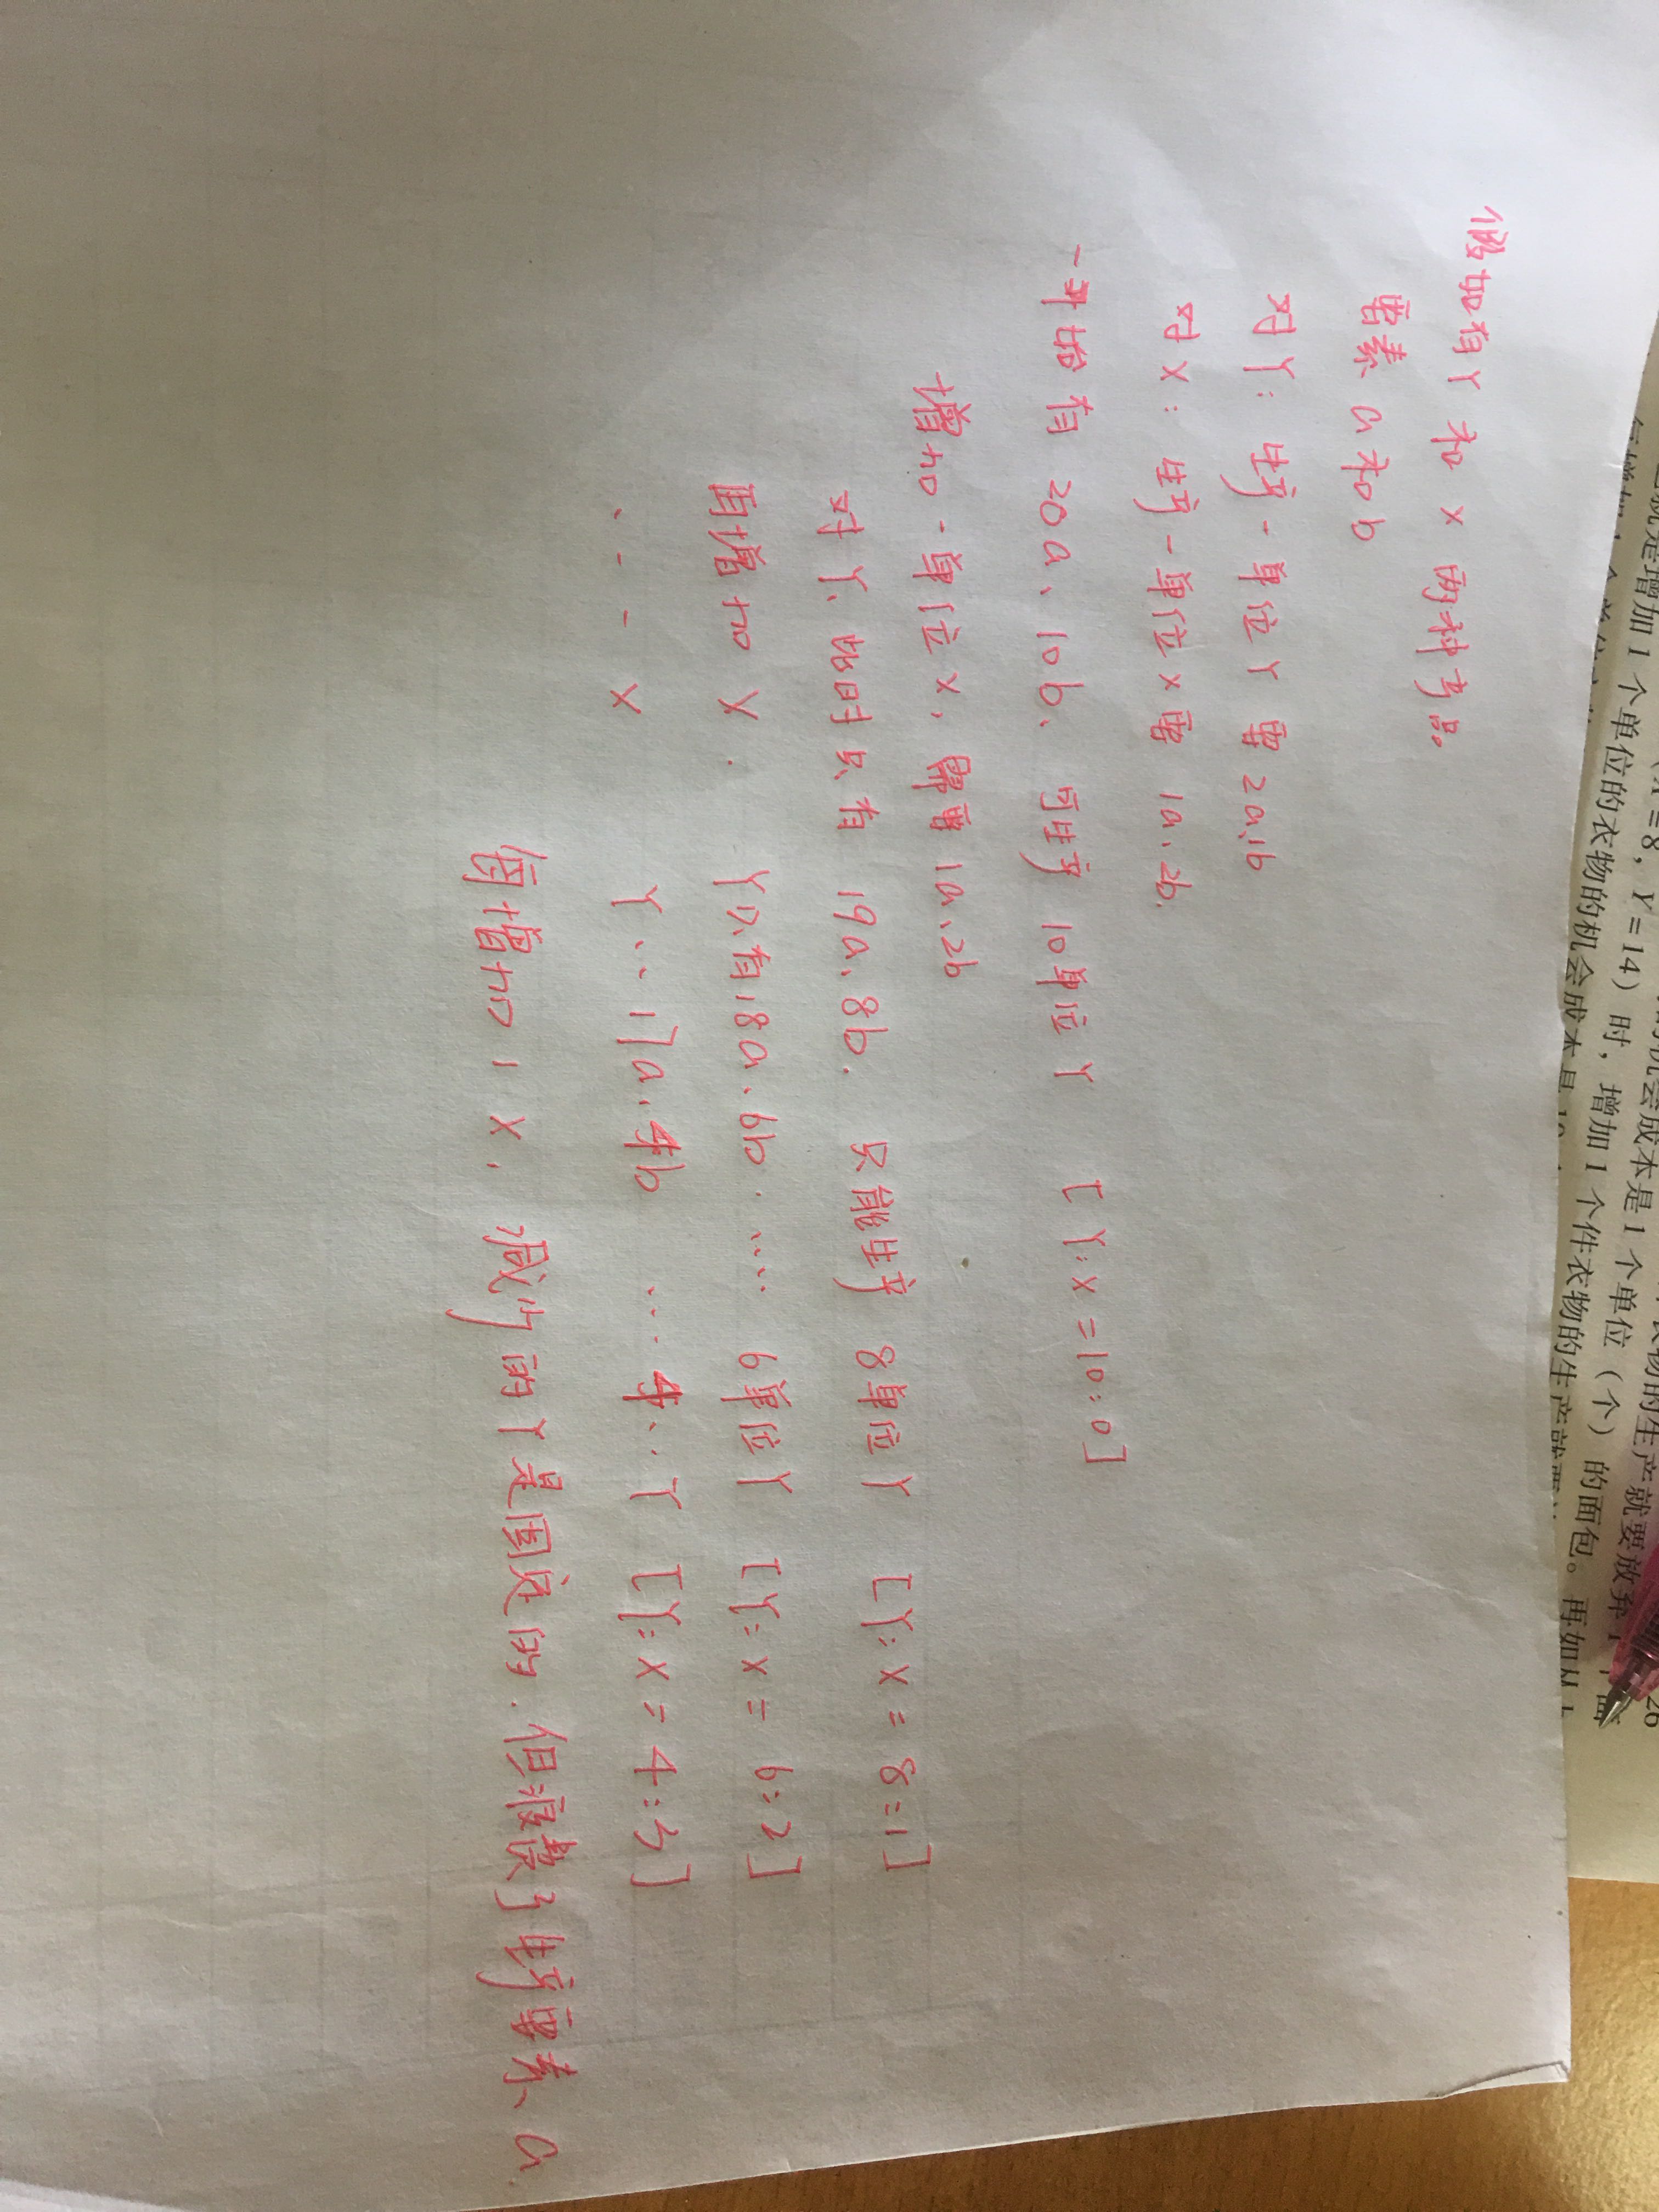 假如有Y和X两种产品。
要素a和b
对Y：生产一单位Y需2a、1b
对X：生产一单位X需1a、2b.
一开始有20a、10b、可生产10单位Y [Y:X=10:0]
增加一单位X，需要1a、2b
对Y、此时只有19a、8b. 只能生产8单位Y [Y:X=8:1]
再增加X. Y只有18a、6b. …… 6单位Y [Y:X=6:2]
、- - X Y、、17a、4b …. 4、、Y [Y:X=4:3]
每增加1X，减少的Y是固定的.但浪费了生产要素a
(X=8，Y=14）时，增加1个单位（个）的面包。再如从
就是增加1个单位的衣物的机会成本是1个单位
增加1个件衣物的生产就要
26